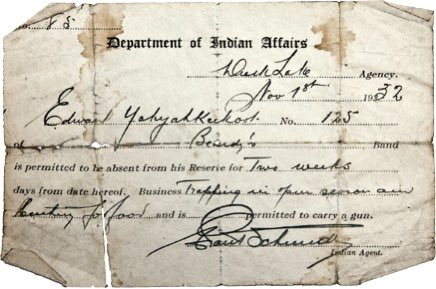 No. 85
Department of Indian Affairs
Duck Lake Agency.
Nov 1st 1932
Edward Yahyahkeekoot No. 125
of Beardy's Band
is permitted to be absent from his Reserve for Two weeks
days from date hereof. Business trapping in open season and
hunting for food and is permitted to carry a gun.
Indian Agent.